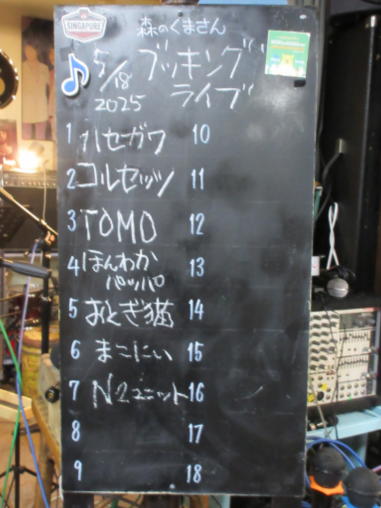 SINGAPURE
森のくまさん
5/18 ブッキング
2025 ライブ
1 ハセガワ 10
2 コルセッツ 11
3 TOMO 12
4 ほんわかパッパ 13
5 おとぎ猫 14
6 まこにい 15
7 N2ユニット 16
8 17
9 18